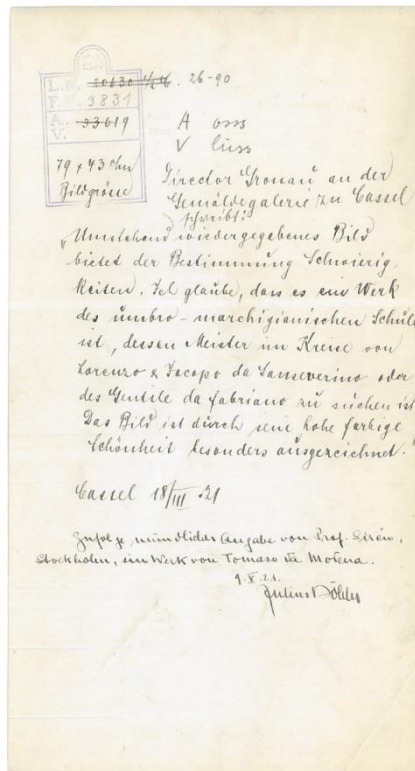 L.N. 20630 1/2 4. 26-90
F.N. 3831
A. 33619
V.
A osss
V lüss
79 x 43 ohn
Bildgrösse
Director Gronau an der
Gemäldegalerie zu Cassel
schreibt:
„Umstehend wiedergegebenes Bild
bietet der Bestimmung Schwierig-
keiten. Ich glaube, dass es ein Werk
des umbro-marchigianischen Schule
ist, dessen Meister im Kreise von
Lorenzo & Jacopo da Sanseverino oder
des Gentile da Fabriano zu suchen ist.
Das Bild ist durch seine hohe farbige
Schönheit besonders ausgezeichnet."
Cassel 18/III 21
Zufolge mündlicher Angabe von Prof. Sirén,
Stockholm, ein Werk von Tomaso da Modena.
9. X. 21.
Julius Böhler